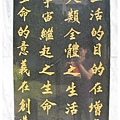 生活的目的在增
人類全體之生活
宇宙繼起之生命
生命的意義在創